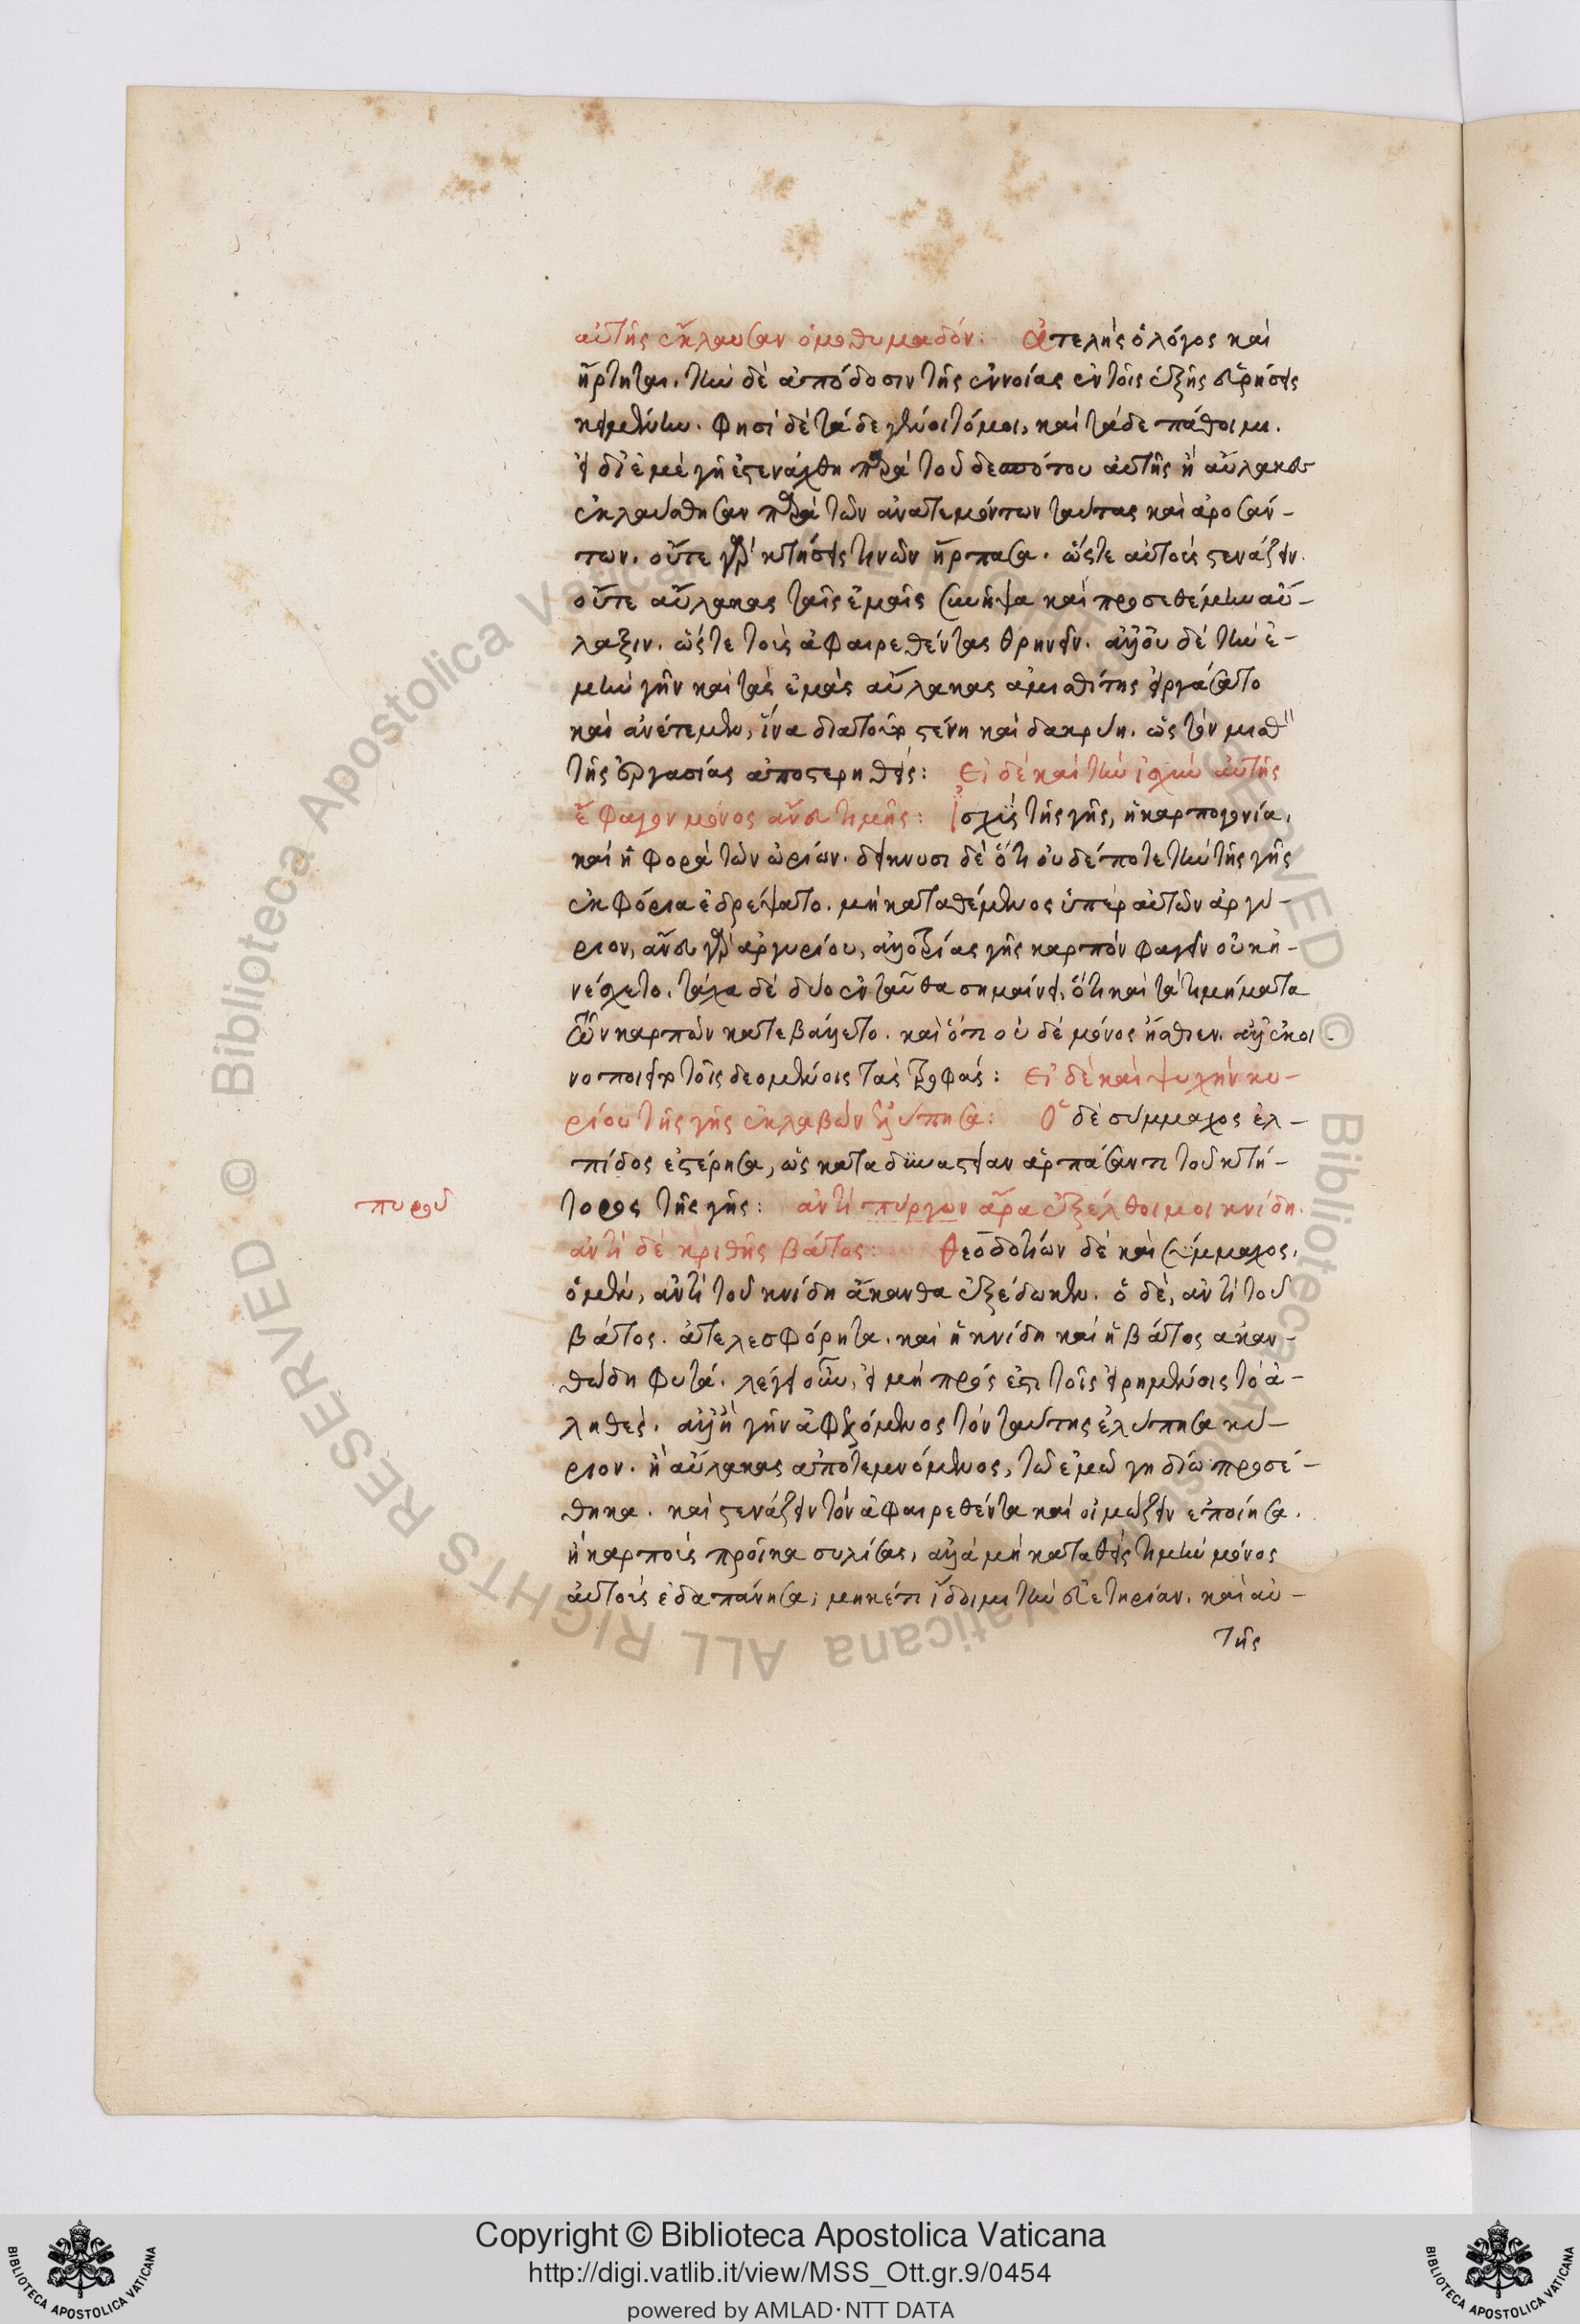 αὐτῆς ἔκλαυσαν ὁμοθυμαδόν: ἀτελὴς ὁ λόγος καὶ
ἤρτηται. τὴν δὲ ἀπόδοσιν τῆς ἐννοίας ἐν τοῖς ἑξῆς εὑρήσεις
κειμένην. φησὶ δὲ τάδε γένοιτό μοι, καὶ τάδε πάθοιμι.
εἰ δι' ἐμὲ γῆ ἐστενάχθη παρὰ τοῦ δεσπότου αὐτῆς ἢ αὔλακες
ἐκλαύσθησαν παρὰ τῶν ἀνατεμόντων ταύτας καὶ ἀροσάν-
των. οὔτε γὰρ κτήσεις τινῶν ἥρπασα. ὥστε αὐτοὺς στενάζειν.
οὔτε αὔλακας ταῖς ἐμαῖς συνῆψα καὶ προσεθέμην αὔ-
λαξιν. ὥστε τοὺς ἀφαιρεθέντας θρηνεῖν. ἀλλ' οὐδὲ τὴν ἐ-
μὴν γῆν καὶ τὰς ἐμὰς αὔλακας ἀμισθί τις εἰργάσατο
καὶ ἀνέτεμεν, ἵνα διὰ τοῦτο στένῃ καὶ δακρύῃ. ὡς τὸν μισθ
τῆς ἐργασίας ἀποστερηθείς: Εἰ δὲ καὶ τὴν ἰσχὺν αὐτῆς
ἔφαγον μόνος ἄνευ τιμῆς: Ἰσχὺς τῆς γῆς, ἡ καρπογονία,
καὶ ἡ φορὰ τῶν ὡρίων. δείκνυσι δὲ ὅτι οὐδέποτε τὴν τῆς γῆς
ἐκφόρια ἐδρέψατο. μὴ καταθέμενος ὑπὲρ αὐτῶν ἀργύ-
ριον, ἄνευ γὰρ ἀργυρίου, ἀλλοτρίας γῆς καρπὸν φαγεῖν οὐκ ἠ-
νέσχετο. τάχα δὲ δύο ἐνταῦθα σημαίνει, ὅτι καὶ τὰ τιμήματα
τῶν καρπῶν κατεβάλλετο. καὶ ὅτι οὐδὲ μόνος ἤσθιεν. ἀλλ' ἐκοι-
νοποιεῖτο τοῖς δεομένοις τὰς τροφάς: Εἰ δὲ καὶ ψυχὴν κυ-
ρίου τῆς γῆς ἐκλαβὼν ἐλύπησα: Ὁ δὲ σύμμαχος ἐλ-
πίδος ἐστέρησα, ὡς κατὰ δυναστείαν ἁρπάσαντι τοῦ κτή-
τορος τῆς γῆς: ἀντὶ πύργων ἄρα ἐξέλθοι μοι κνίδη.
πυροῦ
ἀντὶ δὲ κριθῆς βάτος: Θεοδοτίων δὲ καὶ σύμμαχος,
ὁ μὲν, ἀντὶ τοῦ κνίδη ἄκανθα ἐξέδωκεν. ὁ δὲ, ἀντὶ τοῦ
βάτος. ἀτελεσφόρητα. καὶ ἡ κνίδη καὶ ἡ βάτος ἀκαν-
θώδη φυτά. λέγει οὖν, εἰ μὴ πρός ἐστι τοῖς εἰρημένοις τὸ ἀ-
ληθές. ἀλλ' ἢ γῆν ἀφελόμενος τὸν ταύτης ἐλύπησα κύ-
ριον. ἢ αὔλακας ἀποτεμνόμενος, τῷ ἐμῷ γηδίῳ προσέ-
θηκα. καὶ στενάζειν τὸν ἀφαιρεθέντα καὶ οἰμώζειν ἐποίησα.
ἢ καρποὺς προῖκα συλήσας, ἀλλὰ μὴ καταθεὶς τιμὴν μόνος
αὐτοὺς ἐδαπάνησα, μηκέτι ἴδοιμι τὴν εὐετηρίαν. καὶ αὐ-
τῆς
Copyright © Biblioteca Apostolica Vaticana
http://digi.vatlib.it/view/MSS_Ott.gr.9/0454
powered by AMLAD·NTT DATA
BIBLIOTECA APOSTOLICA VATICANA
BIBLIOTECA APOSTOLICA VATICANA
© Biblioteca Apostolica Vaticana ALL RIGHTS RESERVED